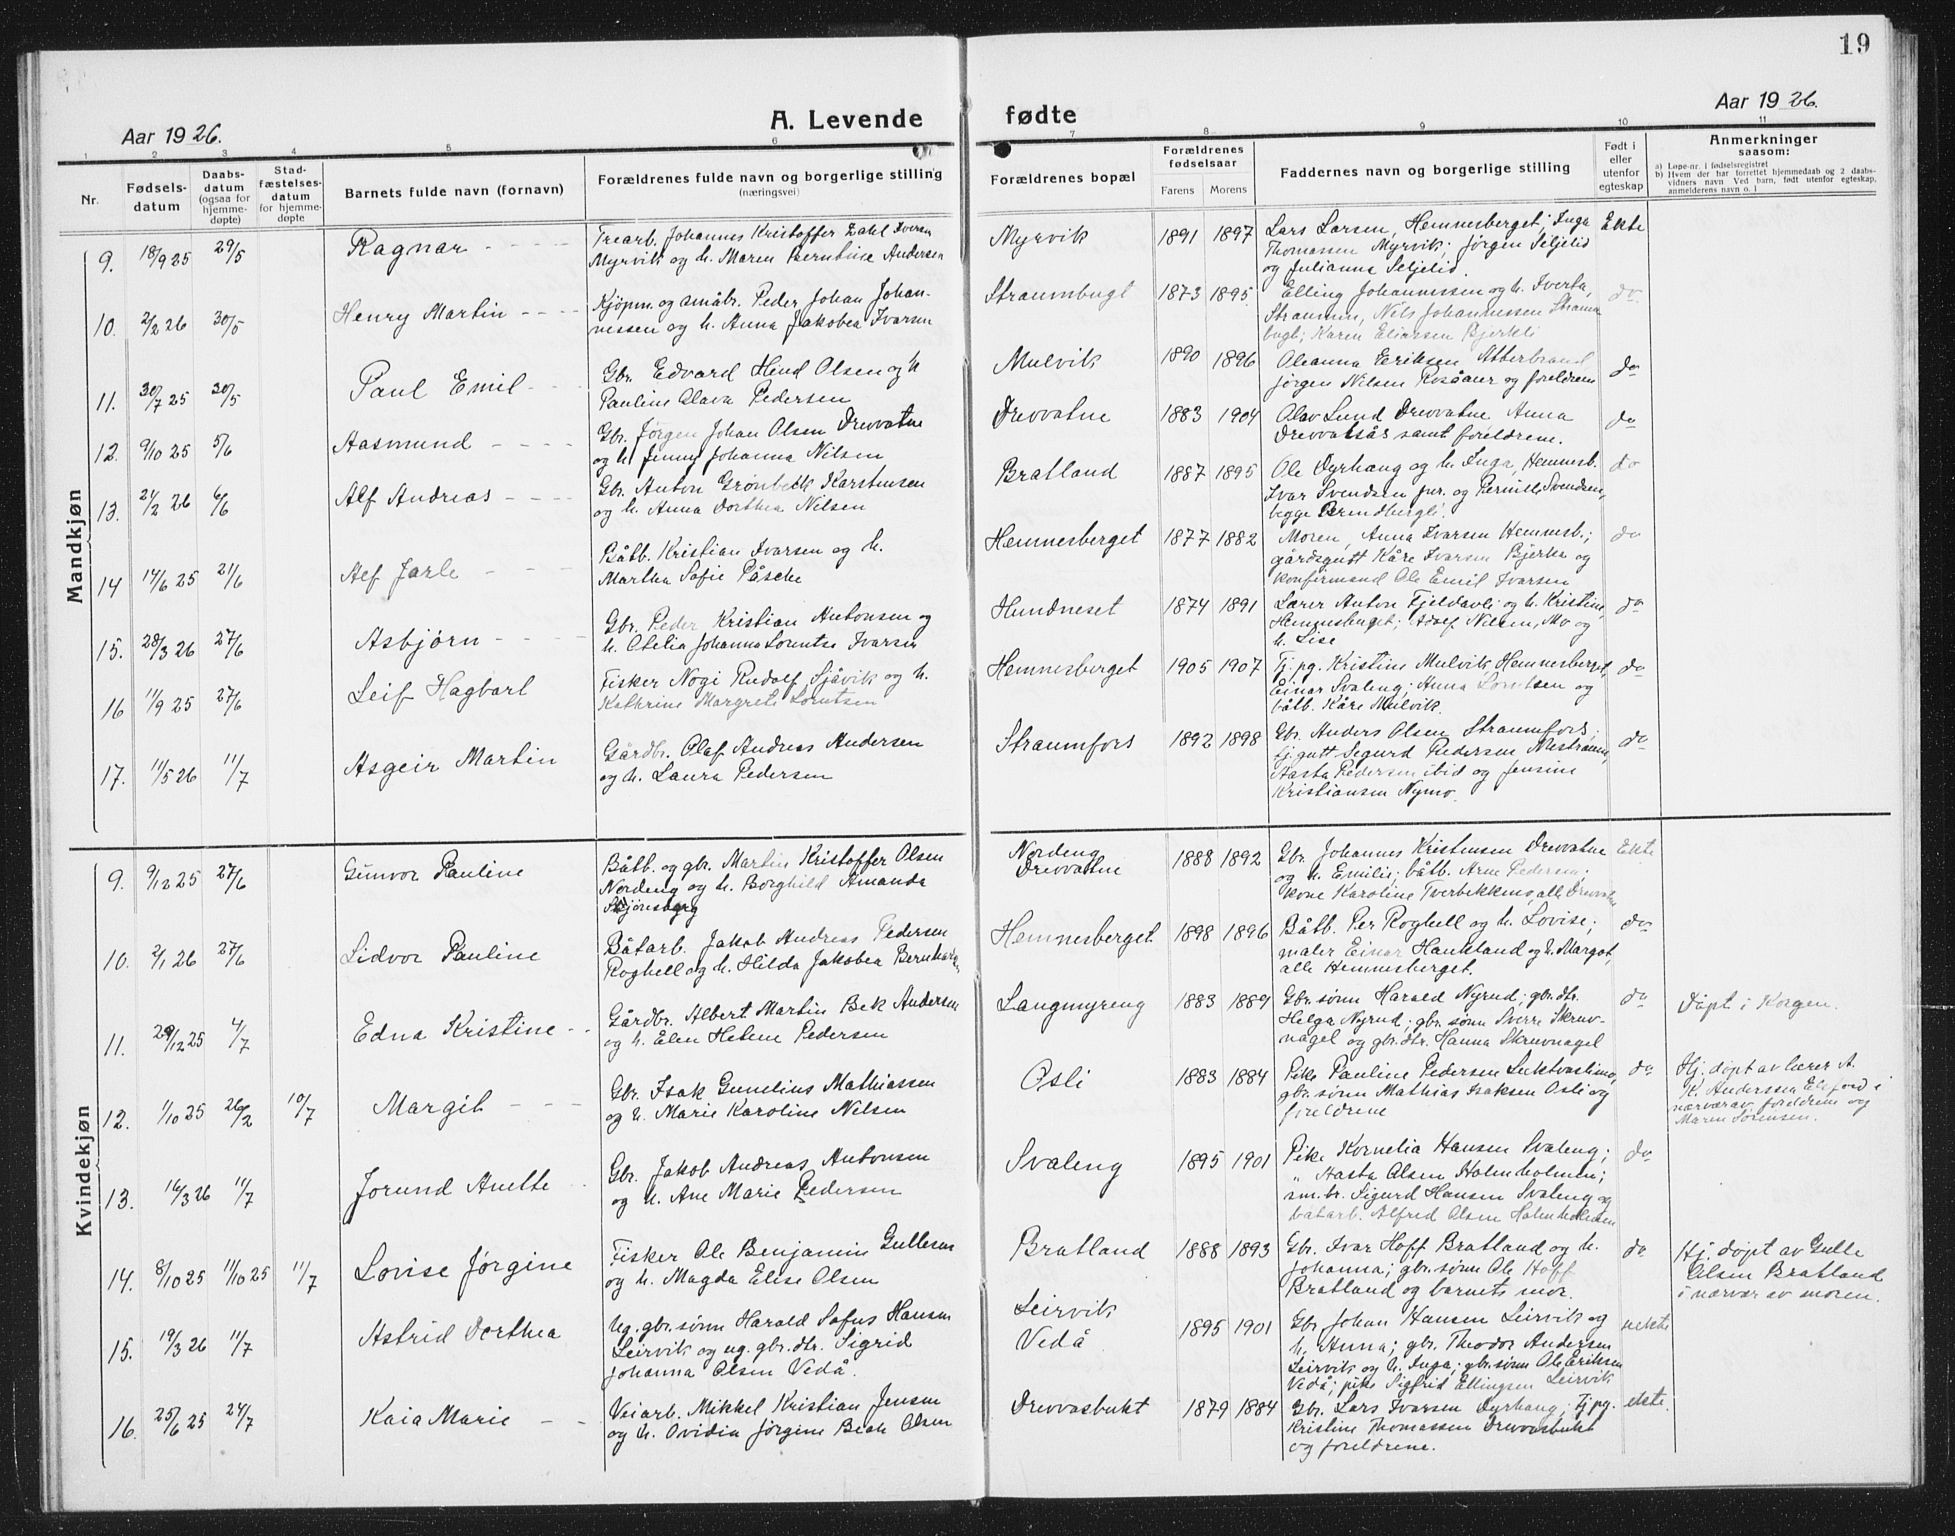 19
Aar 1926.
A. Levende
fødte
Aar 1926.
1 2 3 4 5 6 7 8 9 10 11
Nr.
Fødsels-
datum
Daabs-
datum
(ogsaa for
hjemme-
døpte)
Stad-
fæstelses-
datum
for hjemme-
døpte
Barnets fulde navn (fornavn)
Forældrenes fulde navn og borgerlige stilling
(næringsvei)
Forældrenes bopæl
Forældrenes
fødselsaar
Farens Morens
Faddernes navn og borgerlige stilling
Født i
eller
utenfor
egteskap
Anmerkninger
saasom:
a) Løpe-nr. i fødselsregistret
b) Hvem der har forrettet hjemmedaab og 2 daabs-
vidners navn Ved barn, født utenfor egteskap,
anmelderens navn o. l
Mandkjøn
9. 18/9 25 29/5 Ragnar
Trearb. Johannes Kristoffer Zahl Iversen
Myrvik og h. Maren Berntine Andersen
Myrvik 1891 1897
Lars Larsen, Hemnesberget; Inga
Thomassen Myrvik; Jørgen Seljelid
og Julianna Seljelid.
Ekte
10. 2/2 26 30/5 Henry Martin
Kjøpm. og småbr. Peder Johan Johan-
nessen og h. Anna Jakobea Ivarsen
Straumbugt 1873 1895
Elling Johannessen og h. Iverta,
Straumen, Nils Johannessen Straum
bugt; Karen Eliassen Bjerkli
do
11. 30/7 25 30/5 Paul Emil
Gbr. Edvard Hind Olsen og h
Pauline Olava Pedersen
Mulvik 1890 1896
Oleanna Eriksen Atterbrand
Jørgen Nilsen Rosåaer og foreldrene
do
12. 9/10 25 5/6 Aasmund
Gbr. Jørgen Johan Olsen Drevvatne
og h. Jenny Johanna Nilsen
Drevvatne 1883 1904
Olav Lund Drevvatne Anna
Drevvatsås samt foreldrene.
do
13. 21/2 26 6/6 Alf Andreas
Gbr. Anton Grønbeck Karstensen
og h. Anna Dorthea Nilsen
Bratland 1887 1895
Ole Dyrhaug og h. Inga, Hemnesb.
Ivar Svendsen jnr. og Pernille Svendsen,
begge Brendbergli.
do
14 14/6 25 21/6 Alf Jarle
Båtb. Kristian Ivarsen og h.
Martha Sofie Påsche
Hemnesberget 1877 1882
Moren, Anna Ivarsen Hemnesb.;
gårdsgutt Kåre Ivarsen Bjerka og
konfirmand Ole Emil Ivarsen
do
15. 28/3 26 27/6 Asbjørn
Gbr. Peder Kristian Antonsen og
h. Otelia Johanna Lorentse Ivarsen
Hundneset 1874 1891
Lærer Anton Fjeldavli og h. Kristine,
Hemnesberget; Adolf Nilsen, Mo og
h. Lise
do
16 11/9 25 27/6 Leif Hagbart
Fisker Nogi Rudolf Sjåvik og h.
Kathrine Margrete Lorntsen
Hemnesberget 1905 1907
Tj. pg. Kristine Mulvik Hemnesberget,
Einar Svaleng; Anna Lorntsen og
båtb. Kåre Mulvik.
do
17. 11/5 26 11/7 Asgeir Martin
Gårdbr. Olaf Andreas Andersen
og h. Laura Pedersen
Straumfors 1892 1898
Gbr. Anders Olsen Straumfors;
tj. gutt Sigurd Pedersen Nestraum,
Aasta Pedersen ibid og Jensine
Kristiansen Nymo.
do
Kvindekjøn
9. 9/12 25 27/6 Gunvor Pauline
Båtb. og gbr. Martin Kristoffer Olsen
Nordeng og h. Borghild Amanda
Skjønsberg
Nordeng
Drevvatne 1888 1892
Gbr. Johannes Kristensen Drevvatne
og h. Emilie; båtb. Arne Pedersen;
kone Karoline Tverbekkmo, alle Drevvatne
Ekte
10. 2/1 26 27/6 Lidvor Pauline
Båtarb. Jakob Andreas Pedersen
Roghell og h. Hilda Jakobea Bernhardsen
Hemnesberget 1898 1896
Båtb. Per Roghell og h. Lovise;
maler Einar Haukland og h. Margot,
alle Hemnesberget.
do
11. 29/12 25 4/7 Edna Kristine
Gårdbr. Albert Martin Bek Andersen
og h. Elen Helene Pedersen
Langmyreng 1883 1889
Gbr. sønn Harald Nyrud; gbr. dtr.
Helga Nyrud; gbr. sønn Sverre Skruv-
nagel og gbr. dtr. Hanna Skruvnagel
do
Døpt i Korgen.
12. 11/10 25 26/2 10/7 Margit
Gbr. Isak Gunelius Mathiassen
og h. Marie Karoline Nilsen
Osli 1883 1884
Pike Pauline Pedersen Luktvaslimo,
gbr. sønn Mathias Isaksen Osli og
foreldrene
do
Hj. døpt av lærer A.
K. Anderssen Elsfjord i
nærvær av foreldrene og
Maren Sørensen.
13. 16/3 26 11/7 Jorund Anette
Gbr. Jakob Andreas Antonsen
og h. Ane Marie Pedersen
Svaleng 1895 1901
Pike Kornelia Hansen Svaleng;
" Aasta Olsen Holmholmen;
sm. br. Sigurd Hansen Svaleng og
båtarb. Alfred Olsen Holmholmen
do
14. 8/10 25 11/10 25 11/7 Lovise Jørgine
Fisker Ole Benjamin Gullesen
og h. Magda Elise Olsen
Bratland 1888 1893
Gbr. Ivar Hoff Bratland og h.
Johanna; gbr. sønn Ole Hoff
Bratland og barnets mor.
do
Hj. døpt av Gulle
Olsen Bratland
i nærvær av moren.
15. 19/3 26 11/7 Astrid Dorthea
Ug. gbr. sønn Harald Sofus Hansen
Leirvik og ug. gbr. dtr. Sigrid
Johanna Olsen Vedå.
Leirvik
Vedå 1895 1901
Gbr. Johan Hansen Leirvik og
h. Anna; gbr. Theodor Andersen
Leirvik og h. Inga; gbr. sønn Ole Eriksen
Vedå; pike Sigfrid Ellingsen Leirvik
uekte
16. 25/6 25 24/7 Kaia Marie
Veiarb. Mikkel Kristian Jensen
og h. Ovidia Jørgine Beate Olsen
Drevvasbukt 1879 1884
Gbr. Lars Ivarsen Dyrhaug; Tj. pg.
Kristine Thomassen Drevvasbukt
og foreldrene.
ekte.